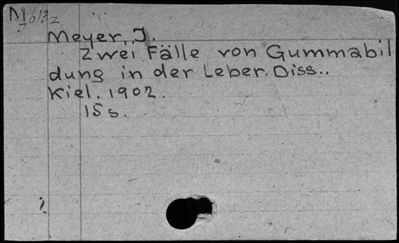 Meyer, J.
Zwei Fälle von Gummabil
dung in der Leber. Diss..
Kiel. 1902.
15 s.